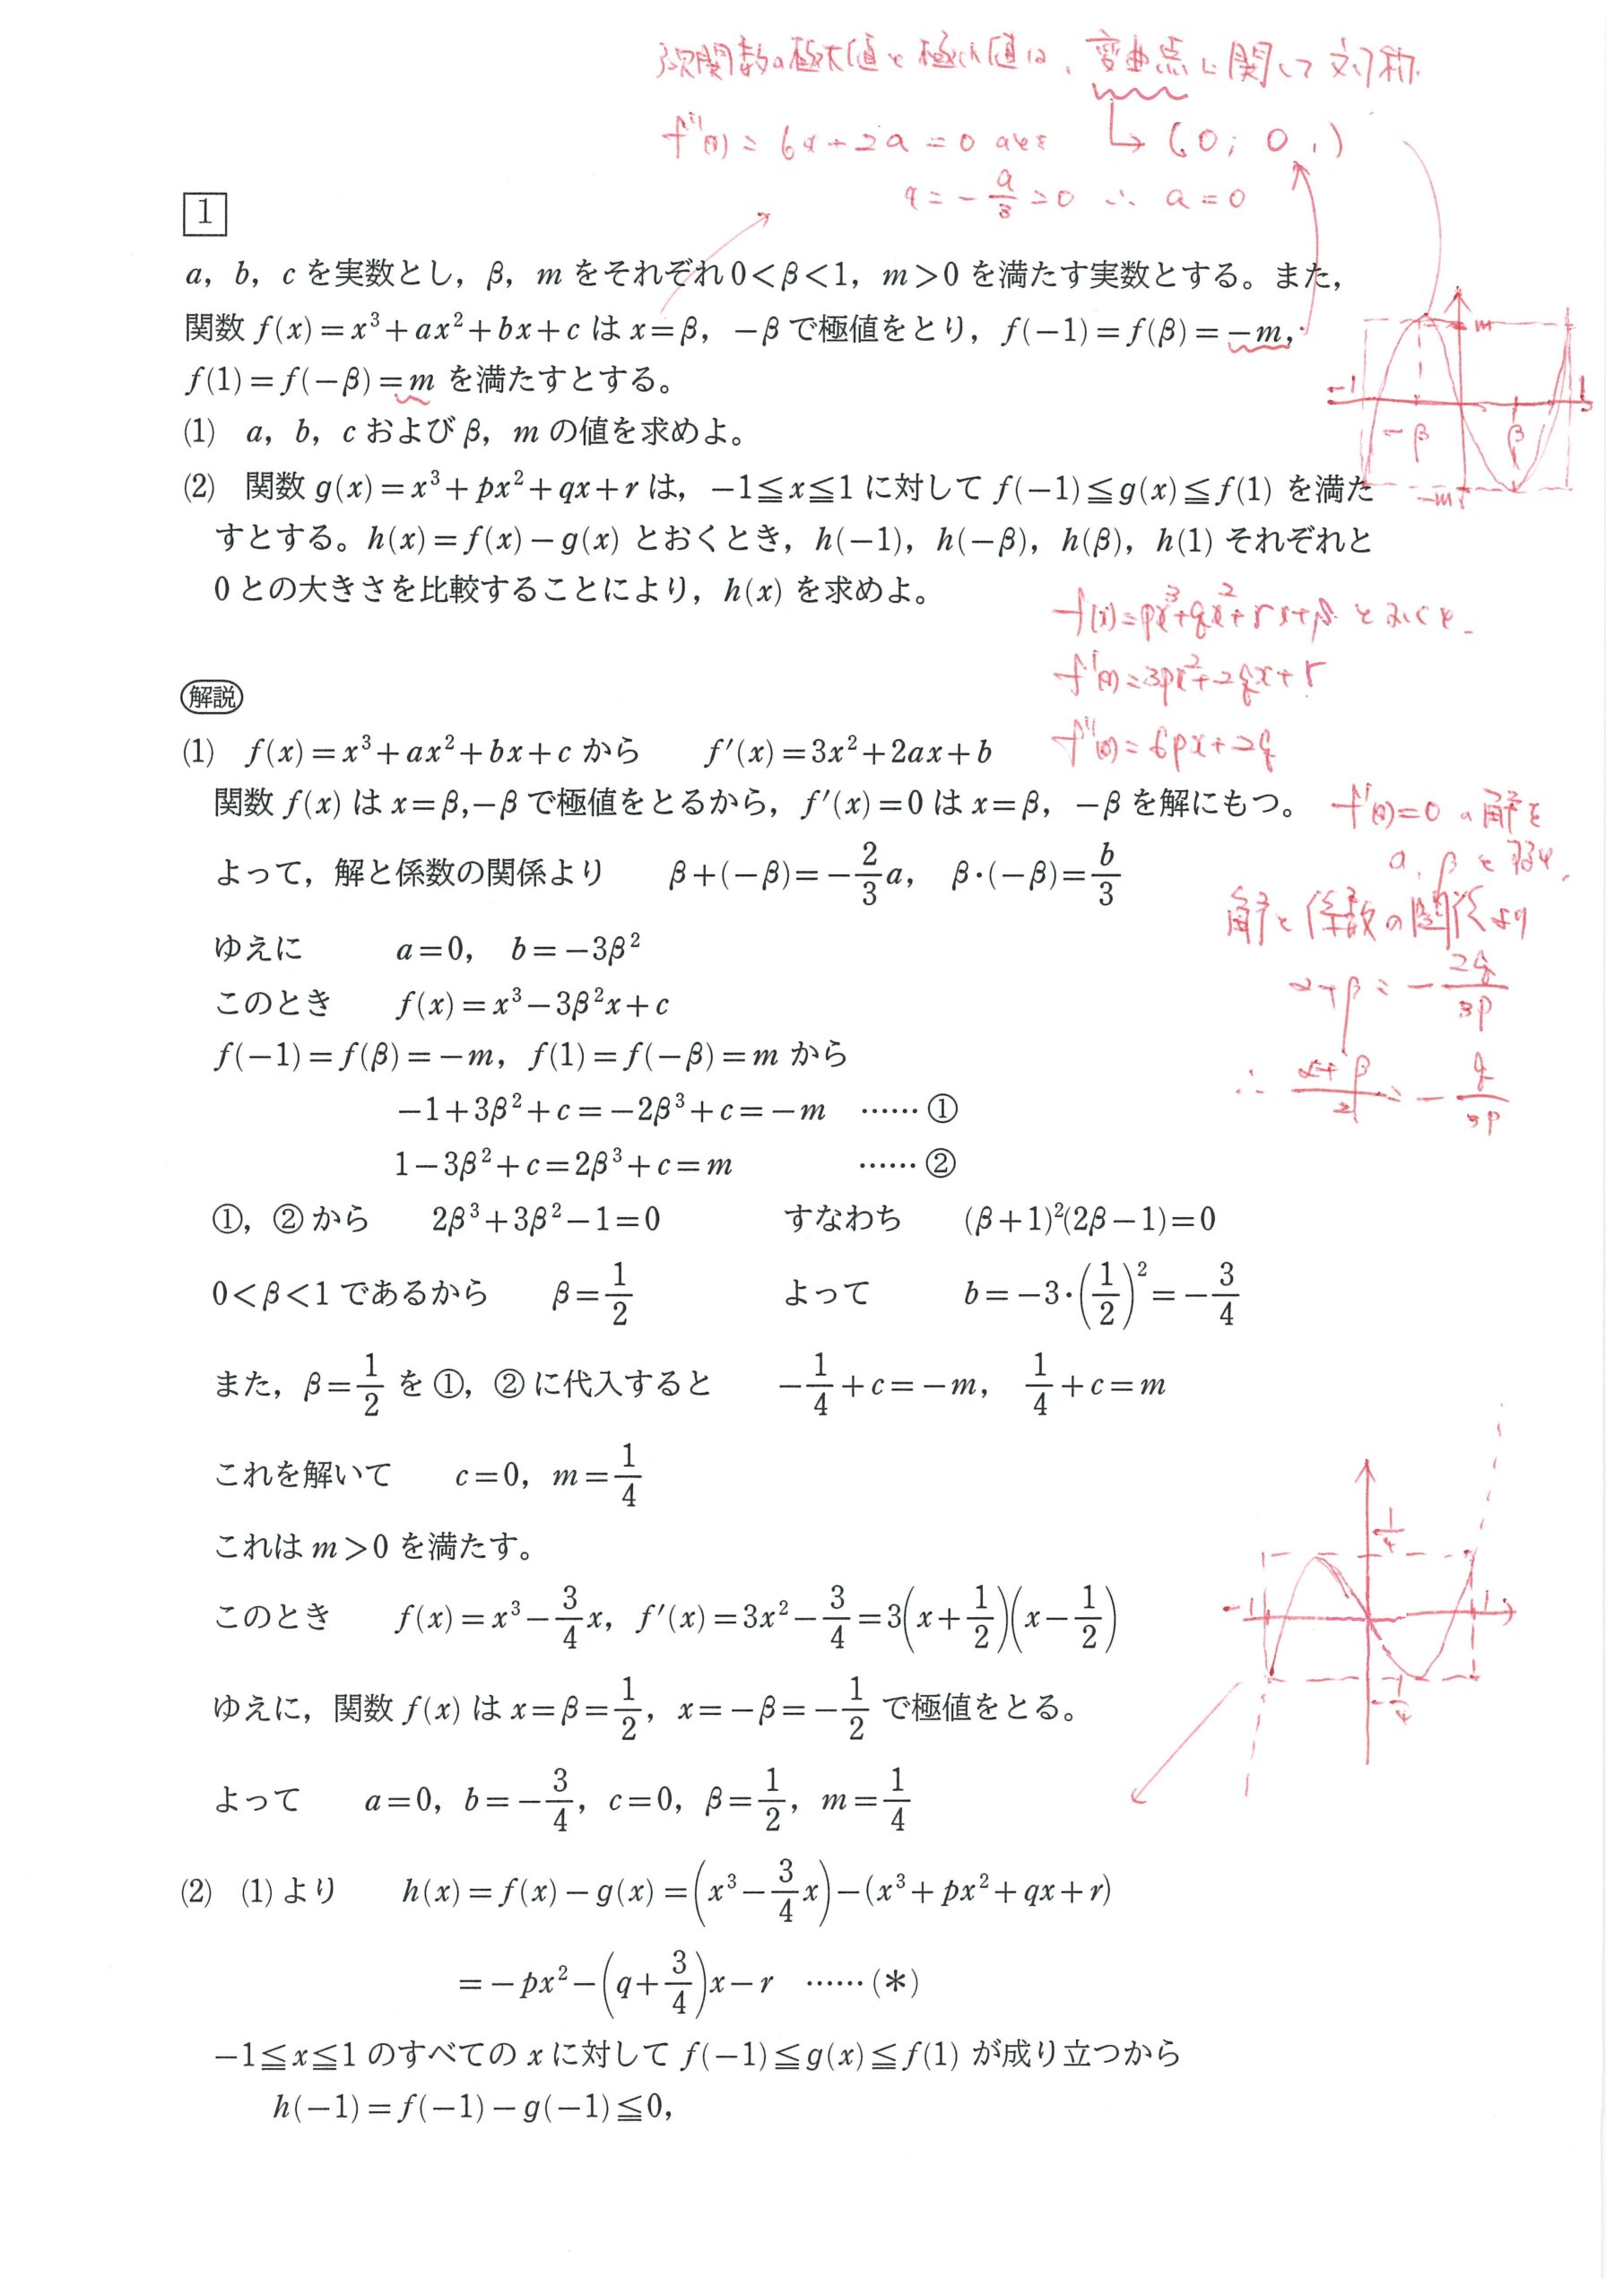 3次関数の極大値と極小値は、変曲点に関して対称.
f''(x) = 6x + 2a = 0 のとき → (0, 0)
x = -a/3 = 0 ∴ a = 0
1
a, b, c を実数とし, β, m をそれぞれ 0<β<1, m>0 を満たす実数とする。また,
関数 f(x)=x³+ax²+bx+c は x=β, -β で極値をとり, f(-1)=f(β)=-m,
f(1)=f(-β)=m を満たすとする。
m
-1 1
-β β
-m
(1) a, b, c および β, m の値を求めよ。
(2) 関数 g(x)=x³+px²+qx+r は, -1≦x≦1 に対して f(-1)≦g(x)≦f(1) を満た
すとする。h(x)=f(x)-g(x) とおくとき, h(-1), h(-β), h(β), h(1) それぞれと
0 との大きさを比較することにより, h(x) を求めよ。
f(x)=px³+qx²+rx+s とおくと
f'(x)=3px²+2qx+r
f''(x)=6px+2q
解説
(1) f(x)=x³+ax²+bx+c から f'(x)=3x²+2ax+b
関数 f(x) は x=β,-β で極値をとるから, f'(x)=0 は x=β, -β を解にもつ。
f'(x)=0 の解を
α, βとすると、
よって, 解と係数の関係より β+(-β)=-2/3a, β·(-β)=b/3
解と係数の関係より
α+β = -2q/3p
∴ (α+β)/2 = -q/3p
ゆえに a=0, b=-3β²
このとき f(x)=x³-3β²x+c
f(-1)=f(β)=-m, f(1)=f(-β)=m から
-1+3β²+c=-2β³+c=-m ……①
1-3β²+c=2β³+c=m ……②
①, ② から 2β³+3β²-1=0 すなわち (β+1)²(2β-1)=0
0<β<1 であるから β=1/2 よって b=-3·(1/2)²=-3/4
また, β=1/2 を ①, ② に代入すると -1/4+c=-m, 1/4+c=m
これを解いて c=0, m=1/4
これは m>0 を満たす。
1/4
-1 1
-1/4
このとき f(x)=x³-3/4x, f'(x)=3x²-3/4=3(x+1/2)(x-1/2)
ゆえに, 関数 f(x) は x=β=1/2, x=-β=-1/2 で極値をとる。
よって a=0, b=-3/4, c=0, β=1/2, m=1/4
(2) (1) より h(x)=f(x)-g(x)=(x³-3/4x)-(x³+px²+qx+r)
=-px²-(q+3/4)x-r ……(*)
-1≦x≦1 のすべての x に対して f(-1)≦g(x)≦f(1) が成り立つから
h(-1)=f(-1)-g(-1)≦0,